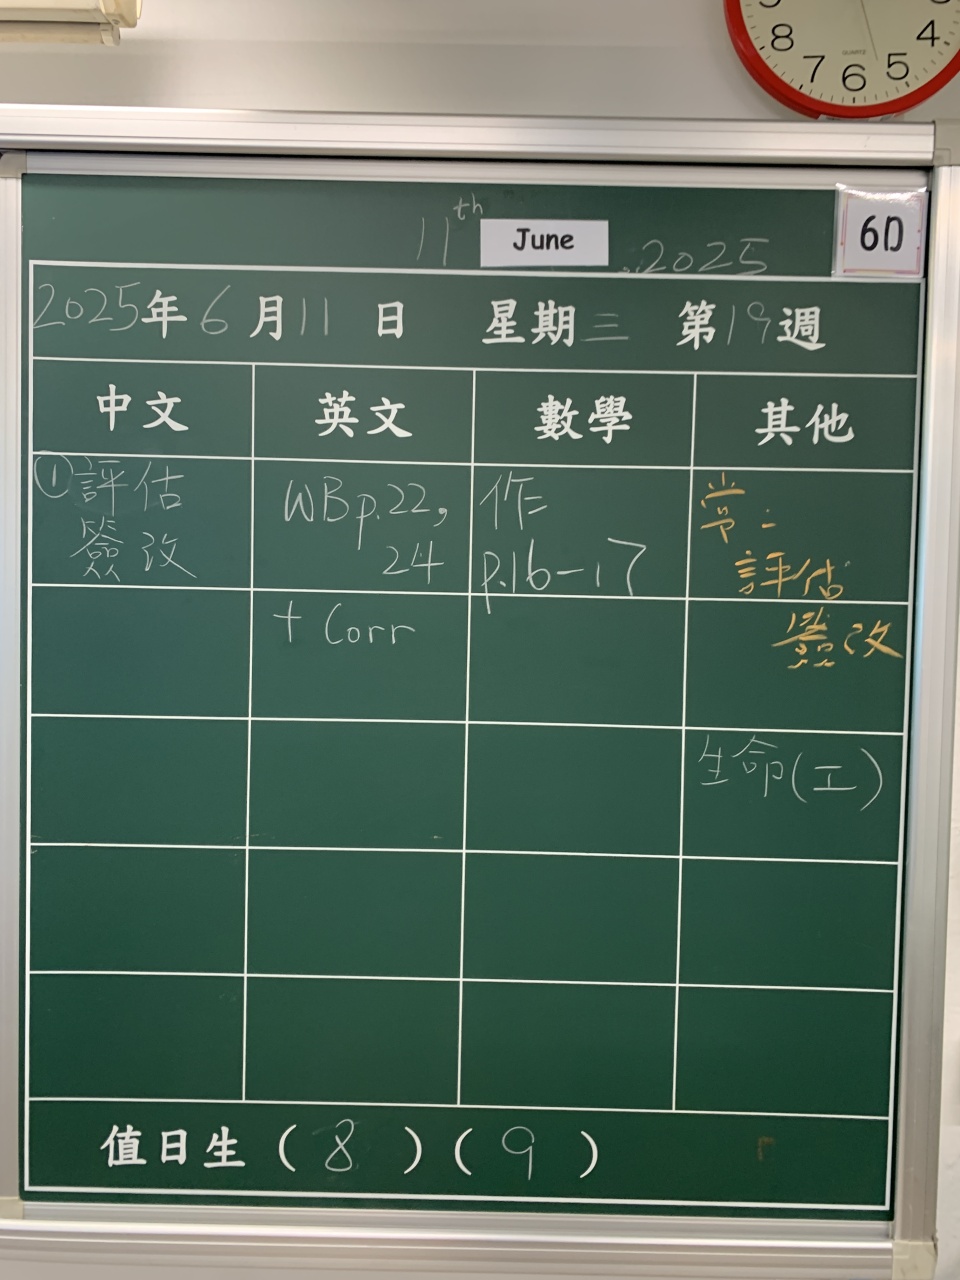 8 7 6 5 4
QUARTZ
11th June 2025
6D
2025年6月11日 星期三 第19週
中文 英文 數學 其他
①評估
簽改
WBp.22,
24
+ Corr
作=
p.16-17
常:
評估
簽改
生命(工)
值日生(8)(9)